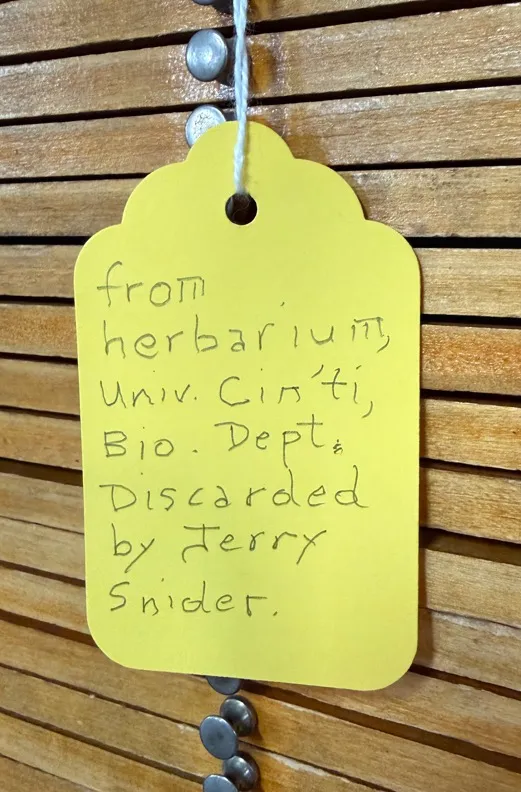 from
herbarium,
Univ. Cin'ti,
Bio. Dept;
Discarded
by Jerry
Snider.